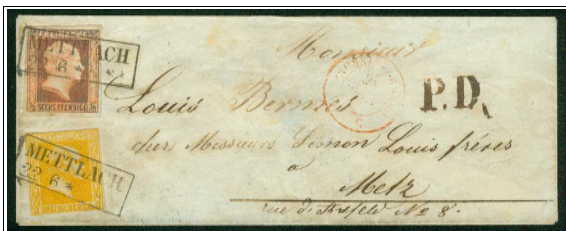 METTLACH
22 6 *
SECHS PFENNIGE
METTLACH
22 6 *
P.D.
Monsieur
Louis Bermes
chez Messieurs Simon Louis frères
à
Metz
rue d' No 8.